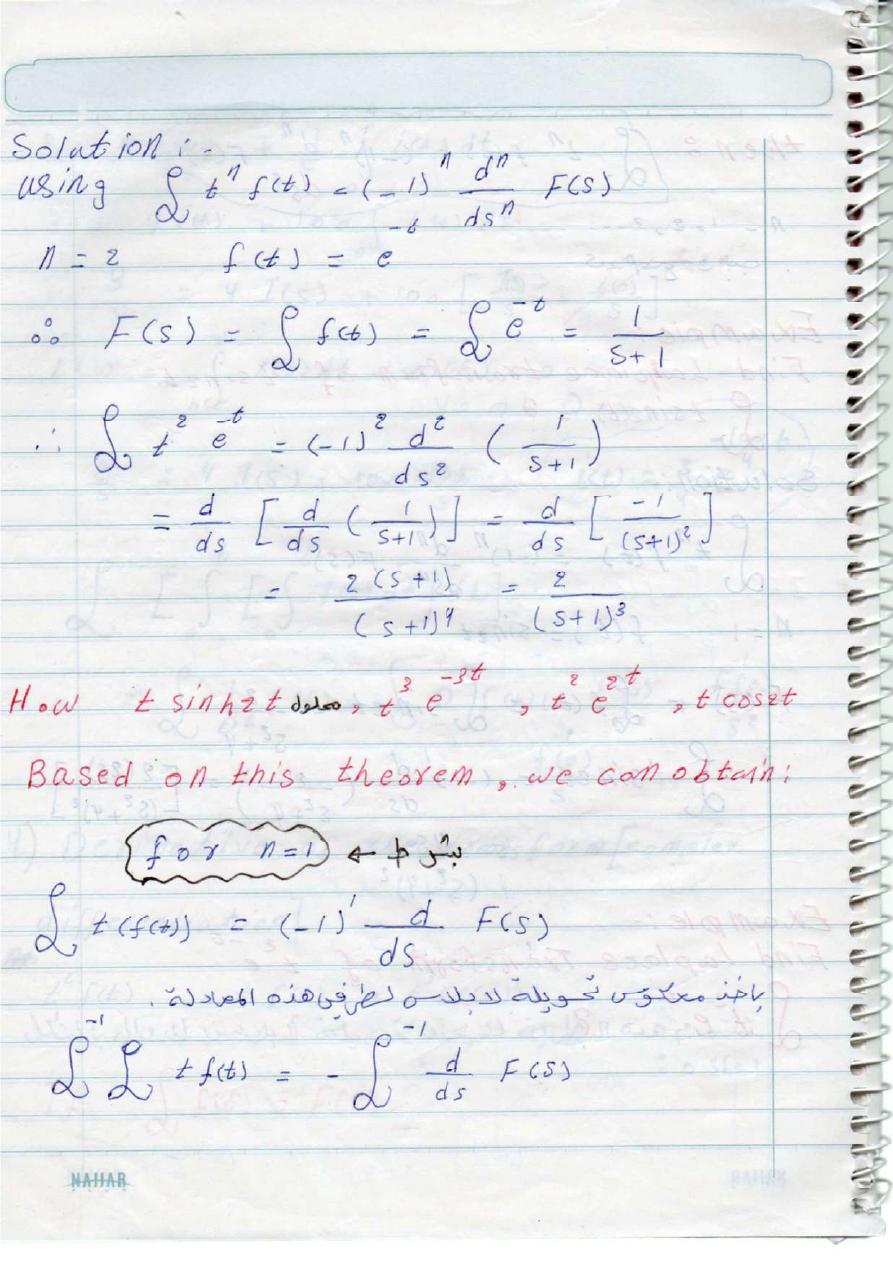 Solution :-
using ℒ tⁿ f(t) = (-1)ⁿ dⁿ/dsⁿ F(s)
n = 2 f(t) = e^-t
∴ F(s) = ℒ f(t) = ℒ e^-t = 1/(s+1)
∴ ℒ t² e^-t = (-1)² d²/ds² (1/(s+1))
= d/ds [d/ds (1/(s+1))] = d/ds [-1/(s+1)²]
= 2(s+1)/(s+1)⁴ = 2/(s+1)³
H.w t sinh2t محلول, t³ e^-3t, t² e^2t, t cos2t
Based on this theorem, we can obtain:
for n=1 ← بشرط
ℒ t(f(t)) = (-1)¹ d/ds F(s)
باخذ معكوس تحويلة لابلاس لطرفي هذه المعادلة.
ℒ⁻¹ ℒ t f(t) = - ℒ⁻¹ d/ds F(s)
NAJJAR